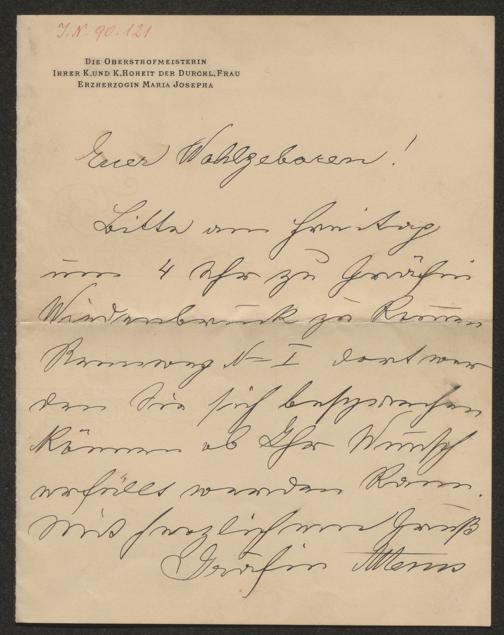 I.N. 90.121
Die Obersthofmeisterin
Ihrer K. und K. Hoheit der Durchl. Frau
Erzherzogin Maria Josepha
Euer Wohlgeboren!
Bitte am Freitag
um 4 Uhr zu Gräfin
Wiedenbruck zu kommen
Rennweg No I dort wer
den Sie sich besprechen
können ob Ihr Wunsch
erfüllt werden kann.
Mit herzlichem Gruß
Gräfin Attems